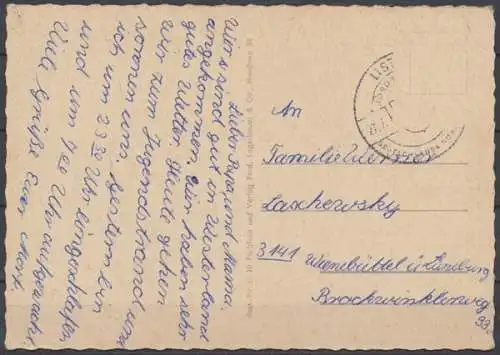 Liebe Papa und Mama.
Wir sind gut in Westerland
angekommen. Wir haben sehr
gutes Wetter. Heute gehen
wir zum Jugendstrand und
sonnen uns. Gestern bin
ich um 23³⁰ Uhr eingeschlafen
und um 7⁰⁰ Uhr aufgewacht.
Viele Grüße Euer
LIST
An
Familie Werner
Laschewsky
3141 Wienebüttel ü Lüneburg
Brockwinklerweg